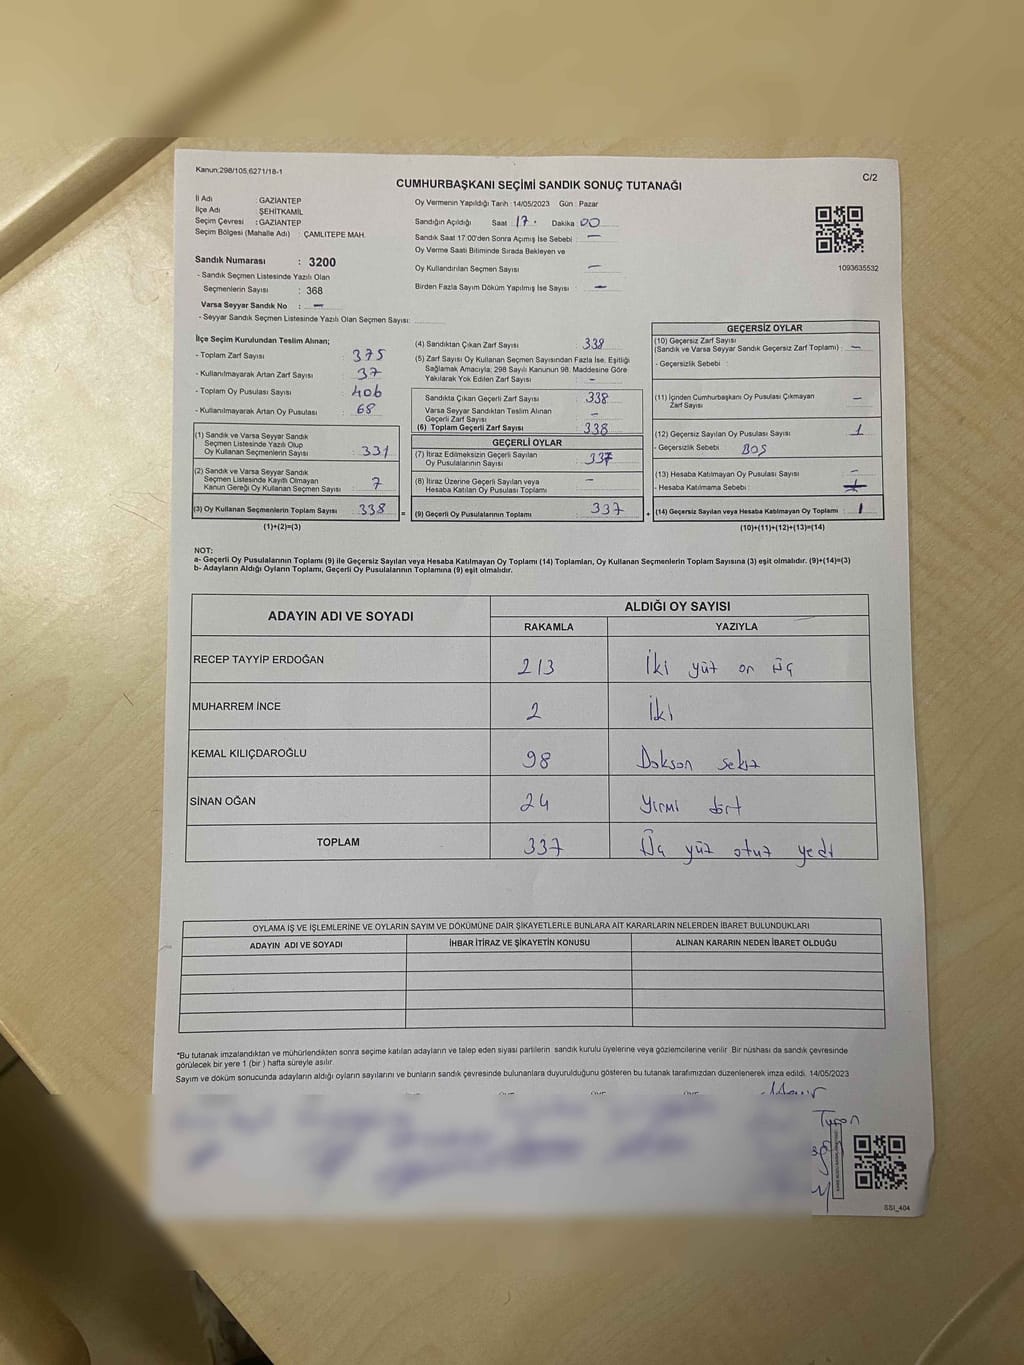 Kanun:298/105,6271/18-1
C/2
CUMHURBAŞKANI SEÇİMİ SANDIK SONUÇ TUTANAĞI
İl Adı : GAZİANTEP
İlçe Adı : ŞEHİTKAMİL
Seçim Çevresi : GAZİANTEP
Seçim Bölgesi (Mahalle Adı) : ÇAMLITEPE MAH.
Sandık Numarası : 3200
- Sandık Seçmen Listesinde Yazılı Olan
Seçmenlerin Sayısı : 368
Varsa Seyyar Sandık No : –
- Seyyar Sandık Seçmen Listesinde Yazılı Olan Seçmen Sayısı:
Oy Vermenin Yapıldığı Tarih : 14/05/2023 Gün : Pazar
Sandığın Açıldığı Saat 17. Dakika 00
Sandık Saat 17:00'den Sonra Açımış İse Sebebi : –
Oy Verme Saati Bitiminde Sırada Bekleyen ve
Oy Kullandırılan Seçmen Sayısı –
Birden Fazla Sayım Döküm Yapılmış İse Sayısı : –
1093635532
İlçe Seçim Kurulundan Teslim Alınan;
- Toplam Zarf Sayısı : 375
- Kullanılmayarak Artan Zarf Sayısı : 37
- Toplam Oy Pusulası Sayısı : 406
- Kullanılmayarak Artan Oy Pusulası : 68
(1) Sandık ve Varsa Seyyar Sandık
Seçmen Listesinde Yazılı Olup
Oy Kullanan Seçmenlerin Sayısı : 331
(2) Sandık ve Varsa Seyyar Sandık
Seçmen Listesinde Kayıtlı Olmayan
Kanun Gereği Oy Kullanan Seçmen Sayısı : 7
(3) Oy Kullanan Seçmenlerin Toplam Sayısı : 338
(1)+(2)=(3)
(4) Sandıktan Çıkan Zarf Sayısı : 338
(5) Zarf Sayısı Oy Kullanan Seçmen Sayısından Fazla İse, Eşitliği
Sağlamak Amacıyla; 298 Sayılı Kanunun 98. Maddesine Göre
Yakılarak Yok Edilen Zarf Sayısı : –
Sandıkta Çıkan Geçerli Zarf Sayısı : 338
Varsa Seyyar Sandıktan Teslim Alınan
Geçerli Zarf Sayısı : –
(6) Toplam Geçerli Zarf Sayısı : 338
GEÇERLİ OYLAR
(7) İtiraz Edilmeksizin Geçerli Sayılan
Oy Pusulalarının Sayısı : 337
(8) İtiraz Üzerine Geçerli Sayılan veya
Hesaba Katılan Oy Pusulası Toplamı : –
= (9) Geçerli Oy Pusulalarının Toplamı : 337
GEÇERSİZ OYLAR
(10) Geçersiz Zarf Sayısı
(Sandık ve Varsa Seyyar Sandık Geçersiz Zarf Toplamı) : –
- Geçersizlik Sebebi :
(11) İçinden Cumhurbaşkanı Oy Pusulası Çıkmayan
Zarf Sayısı : –
(12) Geçersiz Sayılan Oy Pusulası Sayısı : 1
- Geçersizlik Sebebi : BOŞ
(13) Hesaba Katılmayan Oy Pusulası Sayısı : –
- Hesaba Katılmama Sebebi :
+ (14) Geçersiz Sayılan veya Hesaba Katılmayan Oy Toplamı : 1
(10)+(11)+(12)+(13)=(14)
NOT:
a- Geçerli Oy Pusulalarının Toplamı (9) ile Geçersiz Sayılan veya Hesaba Katılmayan Oy Toplamı (14) Toplamları, Oy Kullanan Seçmenlerin Toplam Sayısına (3) eşit olmalıdır. (9)+(14)=(3)
b- Adayların Aldığı Oyların Toplamı, Geçerli Oy Pusulalarının Toplamına (9) eşit olmalıdır.
ADAYIN ADI VE SOYADI ALDIĞI OY SAYISI
RAKAMLA YAZIYLA
RECEP TAYYİP ERDOĞAN 213 İki yüz on üç
MUHARREM İNCE 2 İki
KEMAL KILIÇDAROĞLU 98 Dokson sekiz
SİNAN OĞAN 24 Yirmi dört
TOPLAM 337 Üç yüz otuz yedi
OYLAMA İŞ VE İŞLEMLERİNE VE OYLARIN SAYIM VE DÖKÜMÜNE DAİR ŞİKAYETLERLE BUNLARA AİT KARARLARIN NELERDEN İBARET BULUNDUKLARI
ADAYIN ADI VE SOYADI İHBAR İTİRAZ VE ŞİKAYETİN KONUSU ALINAN KARARIN NEDEN İBARET OLDUĞU
*Bu tutanak imzalandıktan ve mühürlendikten sonra seçime katılan adayların ve talep eden siyasi partilerin sandık kurulu üyelerine veya gözlemcilerine verilir. Bir nüshası da sandık çevresinde
görülecek bir yere 1 (bir) hafta süreyle asılır.
Sayım ve döküm sonucunda adayların aldığı oyların sayılarını ve bunların sandık çevresinde bulunanlara duyurulduğunu gösteren bu tutanak tarafımızdan düzenlenerek imza edildi. 14/05/2023
SSI_404